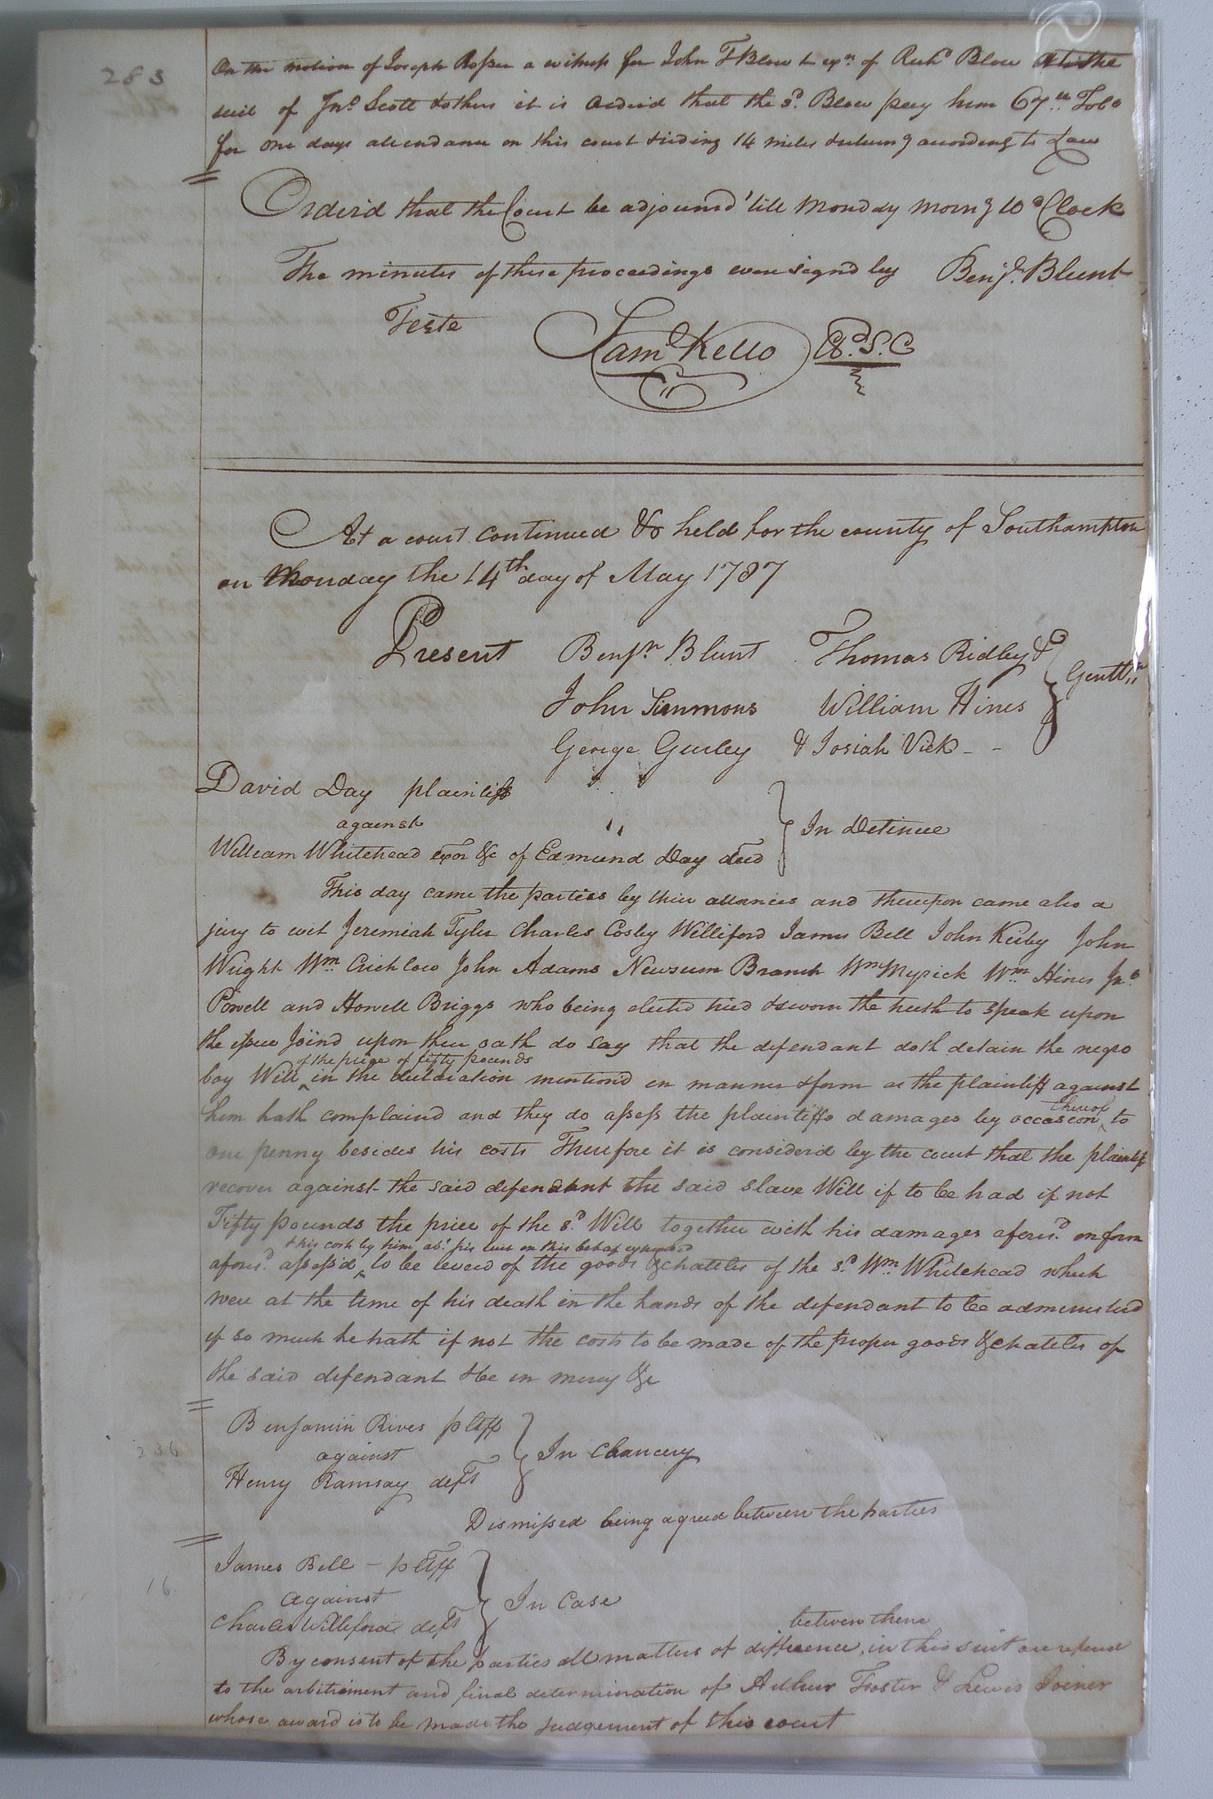 283
On the motion of Joseph Rosser a witness for John T Blow & exrs of Richd Blow at the
suit of Jno. Scott & others it is ordered that the sd. Blow pay him 67 lb Tobo
for one days attendance on this court & riding 14 miles & returng according to Law
Orderd that the Court be adjournd 'till Monday morng 10 oClock
The minutes of these proceedings were signd by Benja. Blunt
Teste
Saml Kello Cl.S.C
At a court continued & held for the county of Southampton
on Monday the 14th day of May 1787
Present Benjn Blunt Thomas Ridley &
John Simmons William Hines
George Gurley & Josiah Vick - -
Gentln
David Day plaintiff
against
William Whitehead exor &c of Edmund Day decd
In Detinue
This day came the parties by their attornies and thereupon came also a
jury to wit Jeremiah Tyler Charles Cosby Williford James Bell John Kirby John
Wright Wm. Crichlow John Adams Newsum Branch Wm Myrick Wm. Hines Jno
Powell and Howell Briggs who being elected tried & sworn the truth to speak upon
the issue Joind upon their oath do say that the defendant doth detain the negro
of the price of fifty pounds
boy Will in the declaration mentiond in manner & form as the plaintiff against
thereof
him hath complaind and they do assess the plaintiffs damages by occasion to
one penny besides his costs Therefore it is considerd by the court that the plaintiff
recover against the said defendant the said slave Will if to be had if not
Fifty pounds the price of the sd. Will together with his damages aforesd. in form
& his costs by him abt. his suit on this behalf expended
aforesd. assess'd to be levied of the goods & chatels of the sd. Wm. Whitehead which
were at the time of his death in the hands of the defendant to be administerd
if so much he hath if not the costs to be made of the proper goods & chateles of
the said defendant & be in mercy &c
Benjamin Rives pltff
against
Henry Ramsay deft
In Chancery
236
Dismissed being agreed between the parties
James Bell - pltff
against
Charles Williford deft
In Case
16
between them
By consent of the parties all matters of difference in this suit are referd
to the arbitrament and final determination of Arthur Foster & Lewis Joiner
whose award is to be made the judgement of this court